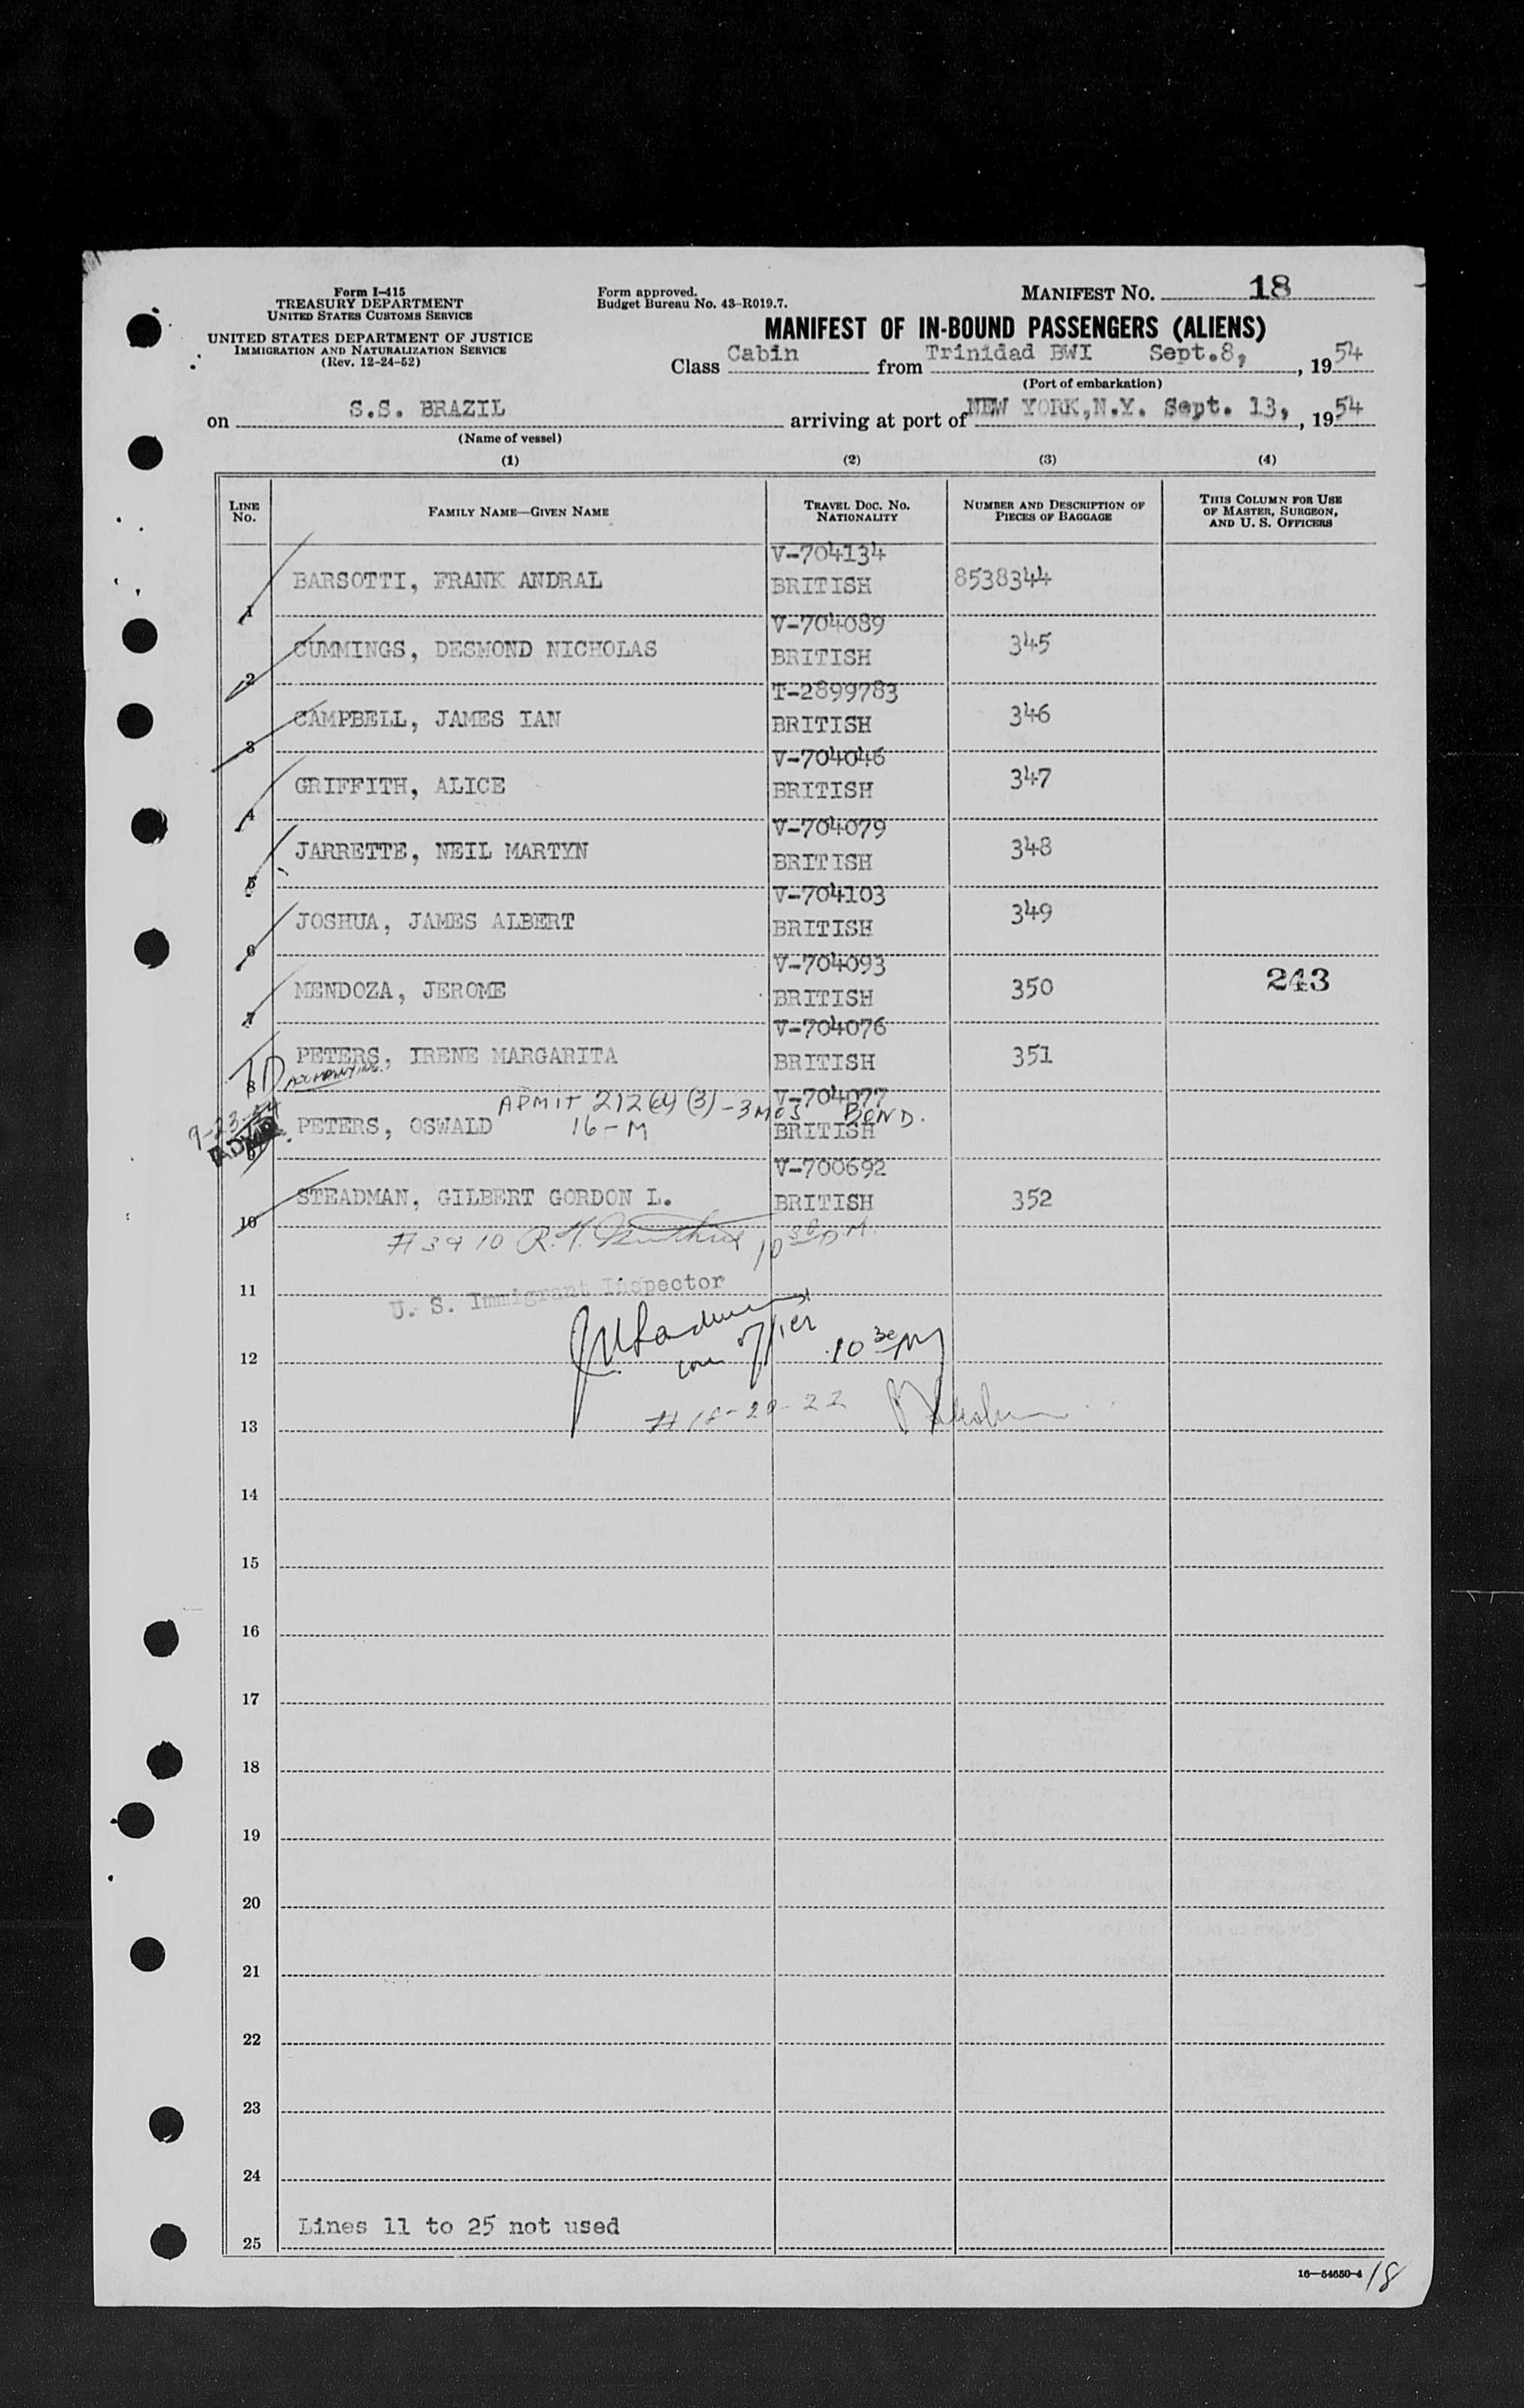 Form I-415
TREASURY DEPARTMENT
UNITED STATES CUSTOMS SERVICE
UNITED STATES DEPARTMENT OF JUSTICE
IMMIGRATION AND NATURALIZATION SERVICE
(Rev. 12-24-52)
Form approved.
Budget Bureau No. 43-R019.7.
MANIFEST NO. 18
MANIFEST OF IN-BOUND PASSENGERS (ALIENS)
Class Cabin from Trinidad BWI Sept.8, , 1954
(Port of embarkation)
on S.S. BRAZIL arriving at port of NEW YORK,N.Y. Sept. 13, , 1954
(Name of vessel)
(1) (2) (3) (4)
LINE NO. FAMILY NAME—GIVEN NAME TRAVEL DOC. NO. NATIONALITY NUMBER AND DESCRIPTION OF PIECES OF BAGGAGE THIS COLUMN FOR USE OF MASTER, SURGEON, AND U. S. OFFICERS
V-704134
1 BARSOTTI, FRANK ANDRAL BRITISH 8538344
V-704089
2 CUMMINGS, DESMOND NICHOLAS BRITISH 345
T-2899783
3 CAMPBELL, JAMES IAN BRITISH 346
V-704046
4 GRIFFITH, ALICE BRITISH 347
V-704079
5 JARRETTE, NEIL MARTYN BRITISH 348
V-704103
6 JOSHUA, JAMES ALBERT BRITISH 349
V-704093
7 MENDOZA, JEROME BRITISH 350 243
V-704076
8 PETERS, IRENE MARGARITA BRITISH 351
TD ACCOMPANYING
V-704077
ADMIT 212(d)(3)-3MOS BOND.
9-23-54
9 PETERS, OSWALD 16-M BRITISH
ADMD
V-700692
10 STEADMAN, GILBERT GORDON L. BRITISH 352
#3910 R. 10 30 PM
11 U. S. Immigrant Inspector
12 officer 10 30 PM
13 #18-20-22
14
15
16
17
18
19
20
21
22
23
24
25 Lines 11 to 25 not used
16—54650-4
18